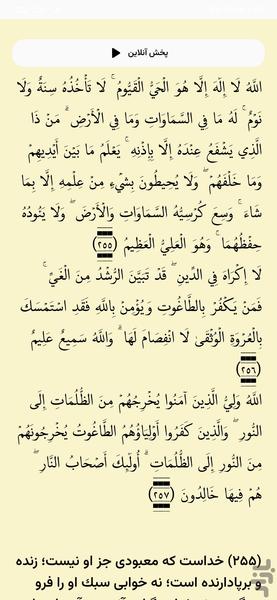 پخش آنلاین
اللَّهُ لَا إِلَٰهَ إِلَّا هُوَ الْحَيُّ الْقَيُّومُ ۚ لَا تَأْخُذُهُ سِنَةٌ وَلَا
نَوْمٌ ۚ لَهُ مَا فِي السَّمَاوَاتِ وَمَا فِي الْأَرْضِ ۗ مَنْ ذَا
الَّذِي يَشْفَعُ عِنْدَهُ إِلَّا بِإِذْنِهِ ۚ يَعْلَمُ مَا بَيْنَ أَيْدِيهِمْ
وَمَا خَلْفَهُمْ ۖ وَلَا يُحِيطُونَ بِشَيْءٍ مِنْ عِلْمِهِ إِلَّا بِمَا
شَاءَ ۚ وَسِعَ كُرْسِيُّهُ السَّمَاوَاتِ وَالْأَرْضَ ۖ وَلَا يَئُودُهُ
حِفْظُهُمَا ۚ وَهُوَ الْعَلِيُّ الْعَظِيمُ ﴿٢٥٥﴾
لَا إِكْرَاهَ فِي الدِّينِ ۖ قَدْ تَبَيَّنَ الرُّشْدُ مِنَ الْغَيِّ ۚ
فَمَنْ يَكْفُرْ بِالطَّاغُوتِ وَيُؤْمِنْ بِاللَّهِ فَقَدِ اسْتَمْسَكَ
بِالْعُرْوَةِ الْوُثْقَىٰ لَا انْفِصَامَ لَهَا ۗ وَاللَّهُ سَمِيعٌ عَلِيمٌ
﴿٢٥٦﴾
اللَّهُ وَلِيُّ الَّذِينَ آمَنُوا يُخْرِجُهُمْ مِنَ الظُّلُمَاتِ إِلَى
النُّورِ ۖ وَالَّذِينَ كَفَرُوا أَوْلِيَاؤُهُمُ الطَّاغُوتُ يُخْرِجُونَهُمْ
مِنَ النُّورِ إِلَى الظُّلُمَاتِ ۗ أُولَٰئِكَ أَصْحَابُ النَّارِ ۖ
هُمْ فِيهَا خَالِدُونَ ﴿٢٥٧﴾
(٢٥٥) خداست که معبودی جز او نیست؛ زنده
و برپادارنده است؛ نه خوابی سبک او را فرو
بازار